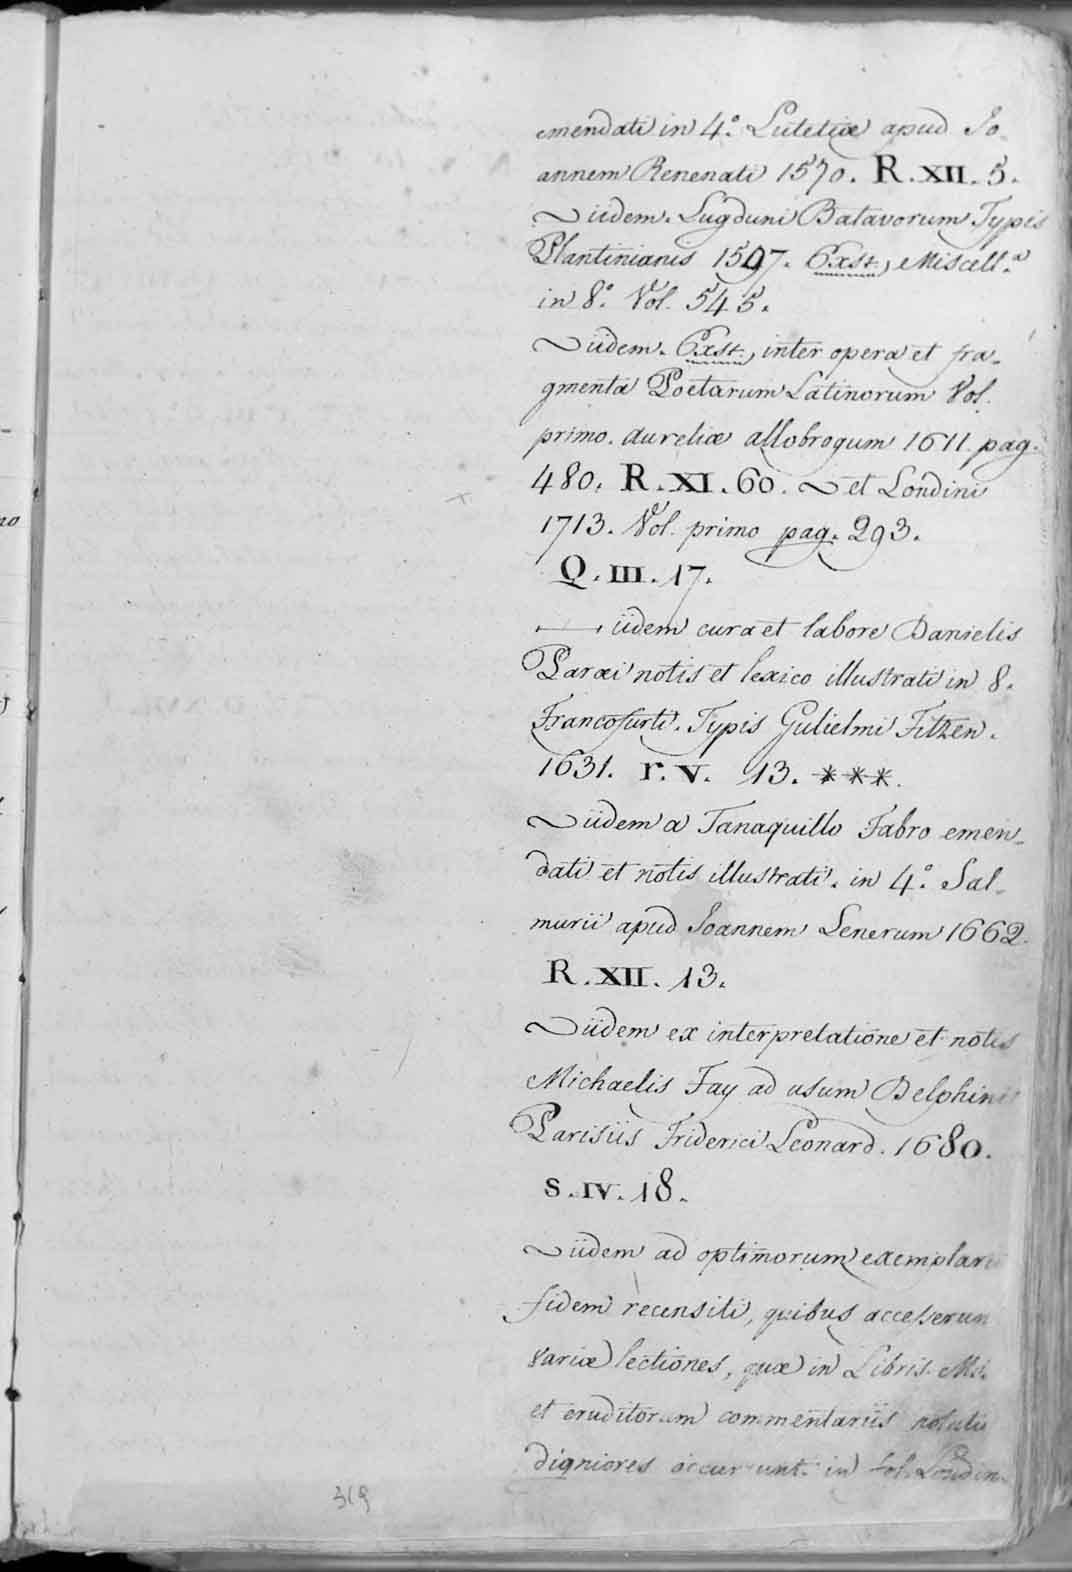 emendati in 4.° Lutetiæ apud Jo-
annem Benenati 1570. R. XII. 5.
~ iidem. Lugduni Batavorum Typis
Plantinianis 1597. Exst., Miscell.ª
in 8.° Vol. 545.
~ iidem. Exst., inter opera et fra-
gmenta Poetarum Latinorum Vol.
primo. Aureliæ allobrogum 1611. pag.
480. R. XI. 60. ~ et Londini
1713. Vol. primo pag. 293.
Q. III. 17.
— iidem cura et labore Danielis
Paræi notis et lexico illustrati in 8.
Francofurti. Typis Gulielmi Fitzen.
1631. r. v. 13. ***.
~ iidem a Tanaquillo Fabro emen-
dati et notis illustrati. in 4.° Sal-
murii apud Joannem Lenerum 1662.
R. XII. 13.
~ iidem ex interpretatione et notis
Michaelis Fay ad usum Delphini
Parisiis Friderici Leonard. 1680.
S. IV. 18.
~ iidem ad optimorum exemplariū
fidem recensiti, quibus accesserun
variæ lectiones, quæ in Libris Ms.
et eruditorum commentariis notatu
digniores occurrunt. in fol. Londin.
319